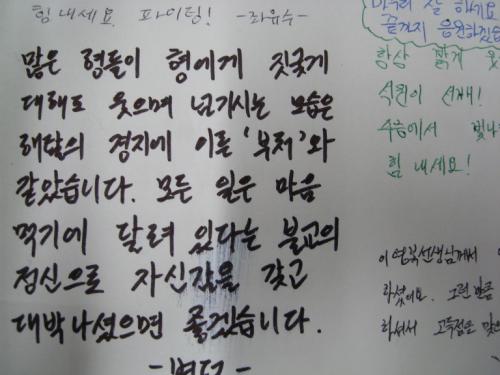 힘 내세요. 파이팅! -좌유수-
많은 형들이 형에게 짓궂게
대해도 웃으며 넘기시는 모습은
해탈의 경지에 이른 '부처'와
같았습니다. 모든 일은 마음
먹기에 달려 있다는 불교의
정신으로 자신감을 갖고
대박나셨으면 좋겠습니다.
마무리 잘 하세요
끝까지 응원하겠습
항상 밝게 웃
석원이 선배!
수능에서 빛나
힘 내세요!
이연복선생님께서
하셨어요. 그런 만큼
하셔서 고득점을 맞으